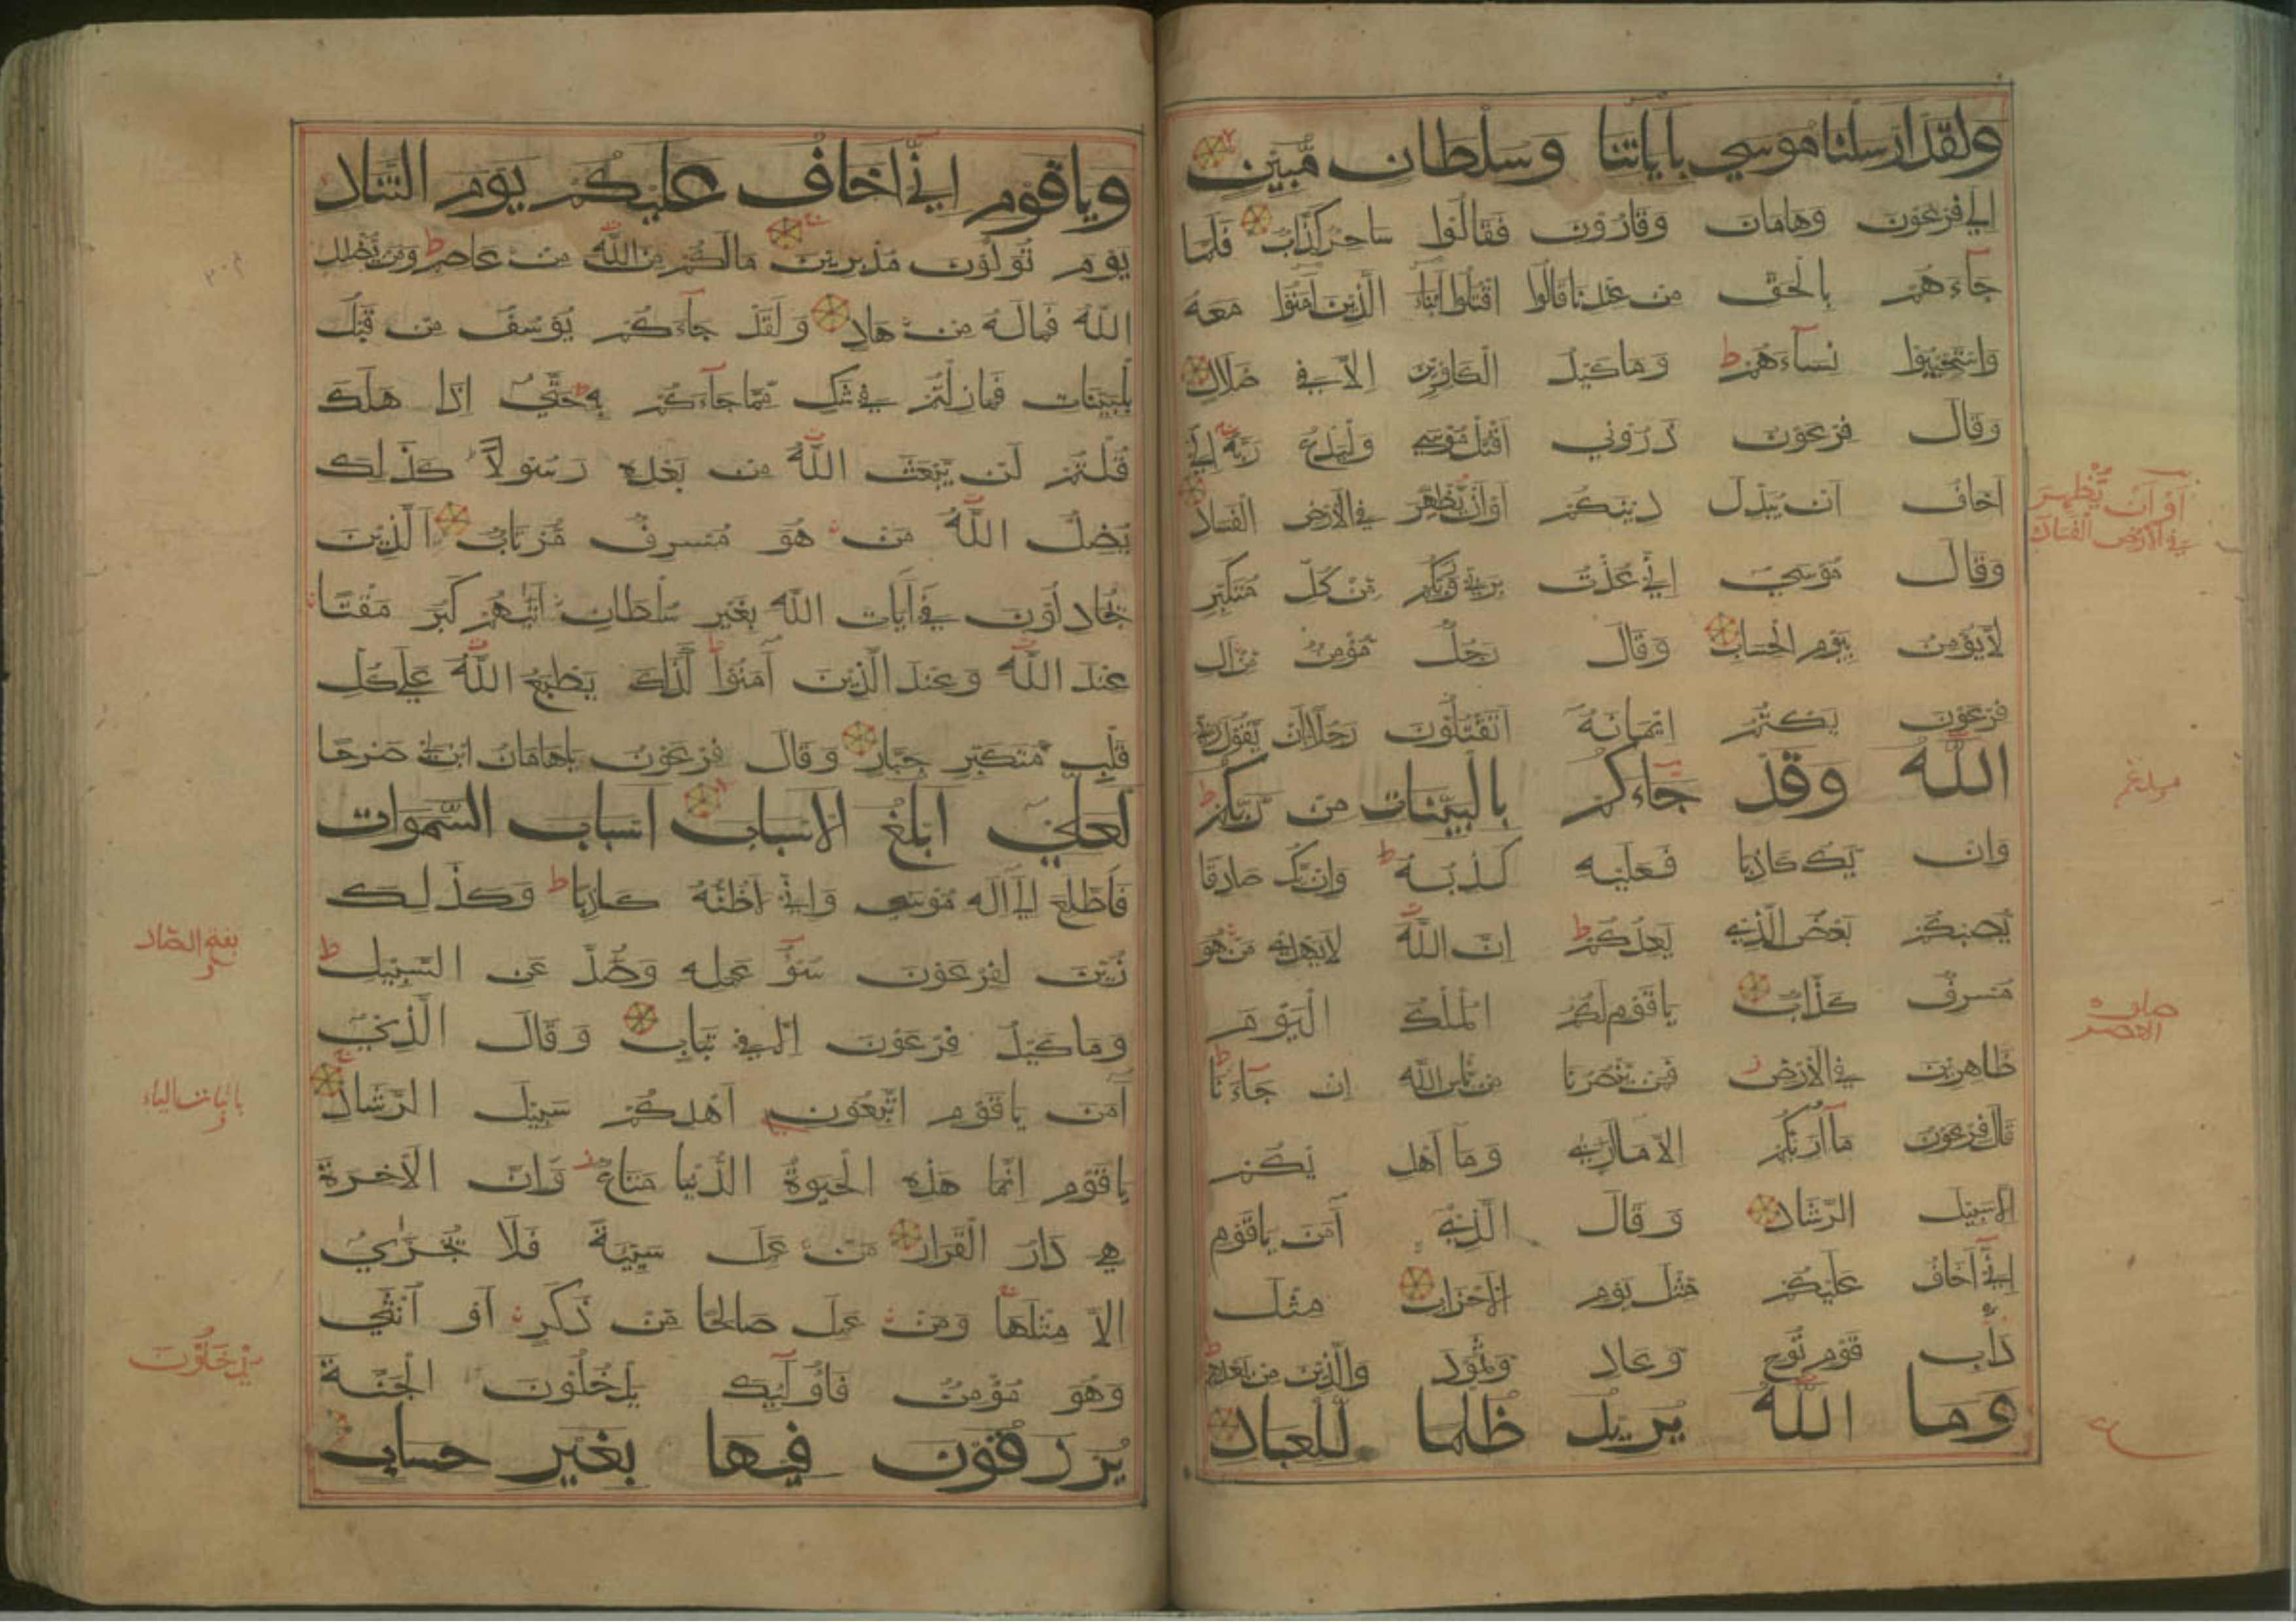 ولقد ارسلنا موسى باياتنا وسلطان مبين
الى فرعون وهامان وقارون فقالوا ساحر كذاب فلما
جاءهم بالحق من عندنا قالوا اقتلوا ابناء الذين آمنوا معه
واستحيوا نساءهم ط وما كيد الكافرين الا في ضلال
وقال فرعون ذروني اقتل موسى وليدع ربه اني
اخاف ان يبدل دينكم او ان يظهر في الارض الفساد
وقال موسى اني عذت بربي وربكم من كل متكبر
لا يؤمن بيوم الحساب وقال رجل مؤمن من ال
فرعون يكتم ايمانه اتقتلون رجلا ان يقول ربي
الله وقد جاءكم بالبينات من ربكم ط
وان يك كاذبا فعليه كذبه ط وان يك صادقا
يصبكم بعض الذي يعدكم ط ان الله لا يهدي من هو
مسرف كذاب يا قوم لكم الملك اليوم
ظاهرين في الارض ز فمن ينصرنا من باس الله ان جاءنا ط
قال فرعون ما اريكم الا ما ارى وما اهد يكم
الا سبيل الرشاد وقال الذي آمن يا قوم
اني اخاف عليكم مثل يوم الاحزاب مثل
داب قوم نوح وعاد وثمود والذين من بعدهم ط
وما الله يريد ظلما للعباد
او ان يظهر
في الارض الفساد
صلوة
العصر
ويا قوم اني اخاف عليكم يوم التناد
يوم تولون مدبرين مالكم من الله من عاصم ط ومن يضلل
الله فماله من هاد ولقد جاءكم يوسف من قبل
بالبينات فما زلتم في شك مما جاءكم به ط حتى اذا هلك
قلتم لن يبعث الله من بعده رسولا ط كذلك
يضل الله من هو مسرف مرتاب الذين
يجادلون في آيات الله بغير سلطان اتيهم كبر مقتا
عند الله وعند الذين آمنوا ط كذلك يطبع الله على كل
قلب متكبر جبار وقال فرعون يا هامان ابن لي صرحا
لعلي ابلغ الاسباب اسباب السموات
فاطلع الى اله موسى واني لاظنه كاذبا ط وكذلك
زين لفرعون سوء عمله وصد عن السبيل ط
وما كيد فرعون الا في تباب وقال الذي
آمن يا قوم اتبعون اهدكم سبيل الرشاد
يا قوم انما هذه الحيوة الدنيا متاع ز وان الاخرة
هي دار القرار من عمل سيئة فلا يجزى
الا مثلها ومن عمل صالحا من ذكر او انثى
وهو مؤمن فاولئك يدخلون الجنة
يرزقون فيها بغير حساب
بفتح الصاد
باثبات الياء
يدخلون